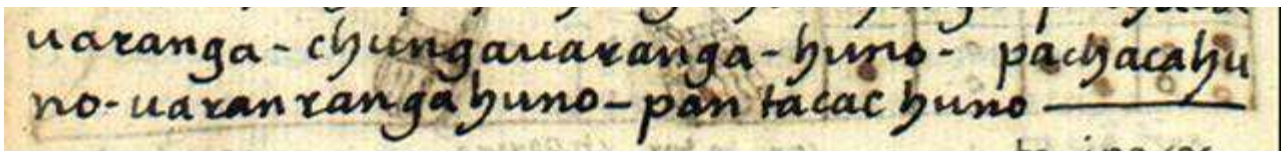 uaranga - chungauaranga - huno - pachacahu
no - uaranranga huno - pantacac huno